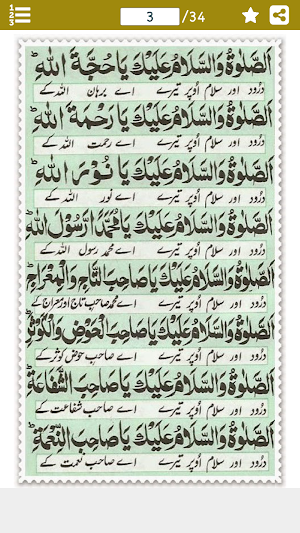 3 /34
اَلصَّلٰوةُ وَالسَّلَامُ عَلَيْكَ يَا حُجَّةَ اللهِ
درُود اور سلام اُوپر تیرے اے برہان اللہ کے
اَلصَّلٰوةُ وَالسَّلَامُ عَلَيْكَ يَا رَحْمَةَ اللهِ
درُود اور سلام اُوپر تیرے اے رحمت اللہ کے
اَلصَّلٰوةُ وَالسَّلَامُ عَلَيْكَ يَا نُوْرَ اللهِ
درُود اور سلام اُوپر تیرے اے نور اللہ کے
اَلصَّلٰوةُ وَالسَّلَامُ عَلَيْكَ يَا مُحَمَّدُ رَّسُوْلَ اللهِ
درُود اور سلام اُوپر تیرے اے محمد رسول اللہ کے
اَلصَّلٰوةُ وَالسَّلَامُ عَلَيْكَ يَا صَاحِبَ التَّاجِ وَالْمِعْرَاجِ
درُود اور سلام اُوپر تیرے اے محمد صاحب تاج اور معراج کے
اَلصَّلٰوةُ وَالسَّلَامُ عَلَيْكَ يَا صَاحِبَ الْحَوْضِ وَالْكَوْثَرِ
درُود اور سلام اُوپر تیرے اے صاحب حوض کوثر کے
اَلصَّلٰوةُ وَالسَّلَامُ عَلَيْكَ يَا صَاحِبَ الشَّفَاعَةِ
درُود اور سلام اُوپر تیرے اے صاحب شفاعت کے
اَلصَّلٰوةُ وَالسَّلَامُ عَلَيْكَ يَا صَاحِبَ النِّعْمَةِ
درُود اور سلام اُوپر تیرے اے صاحب نعمت کے